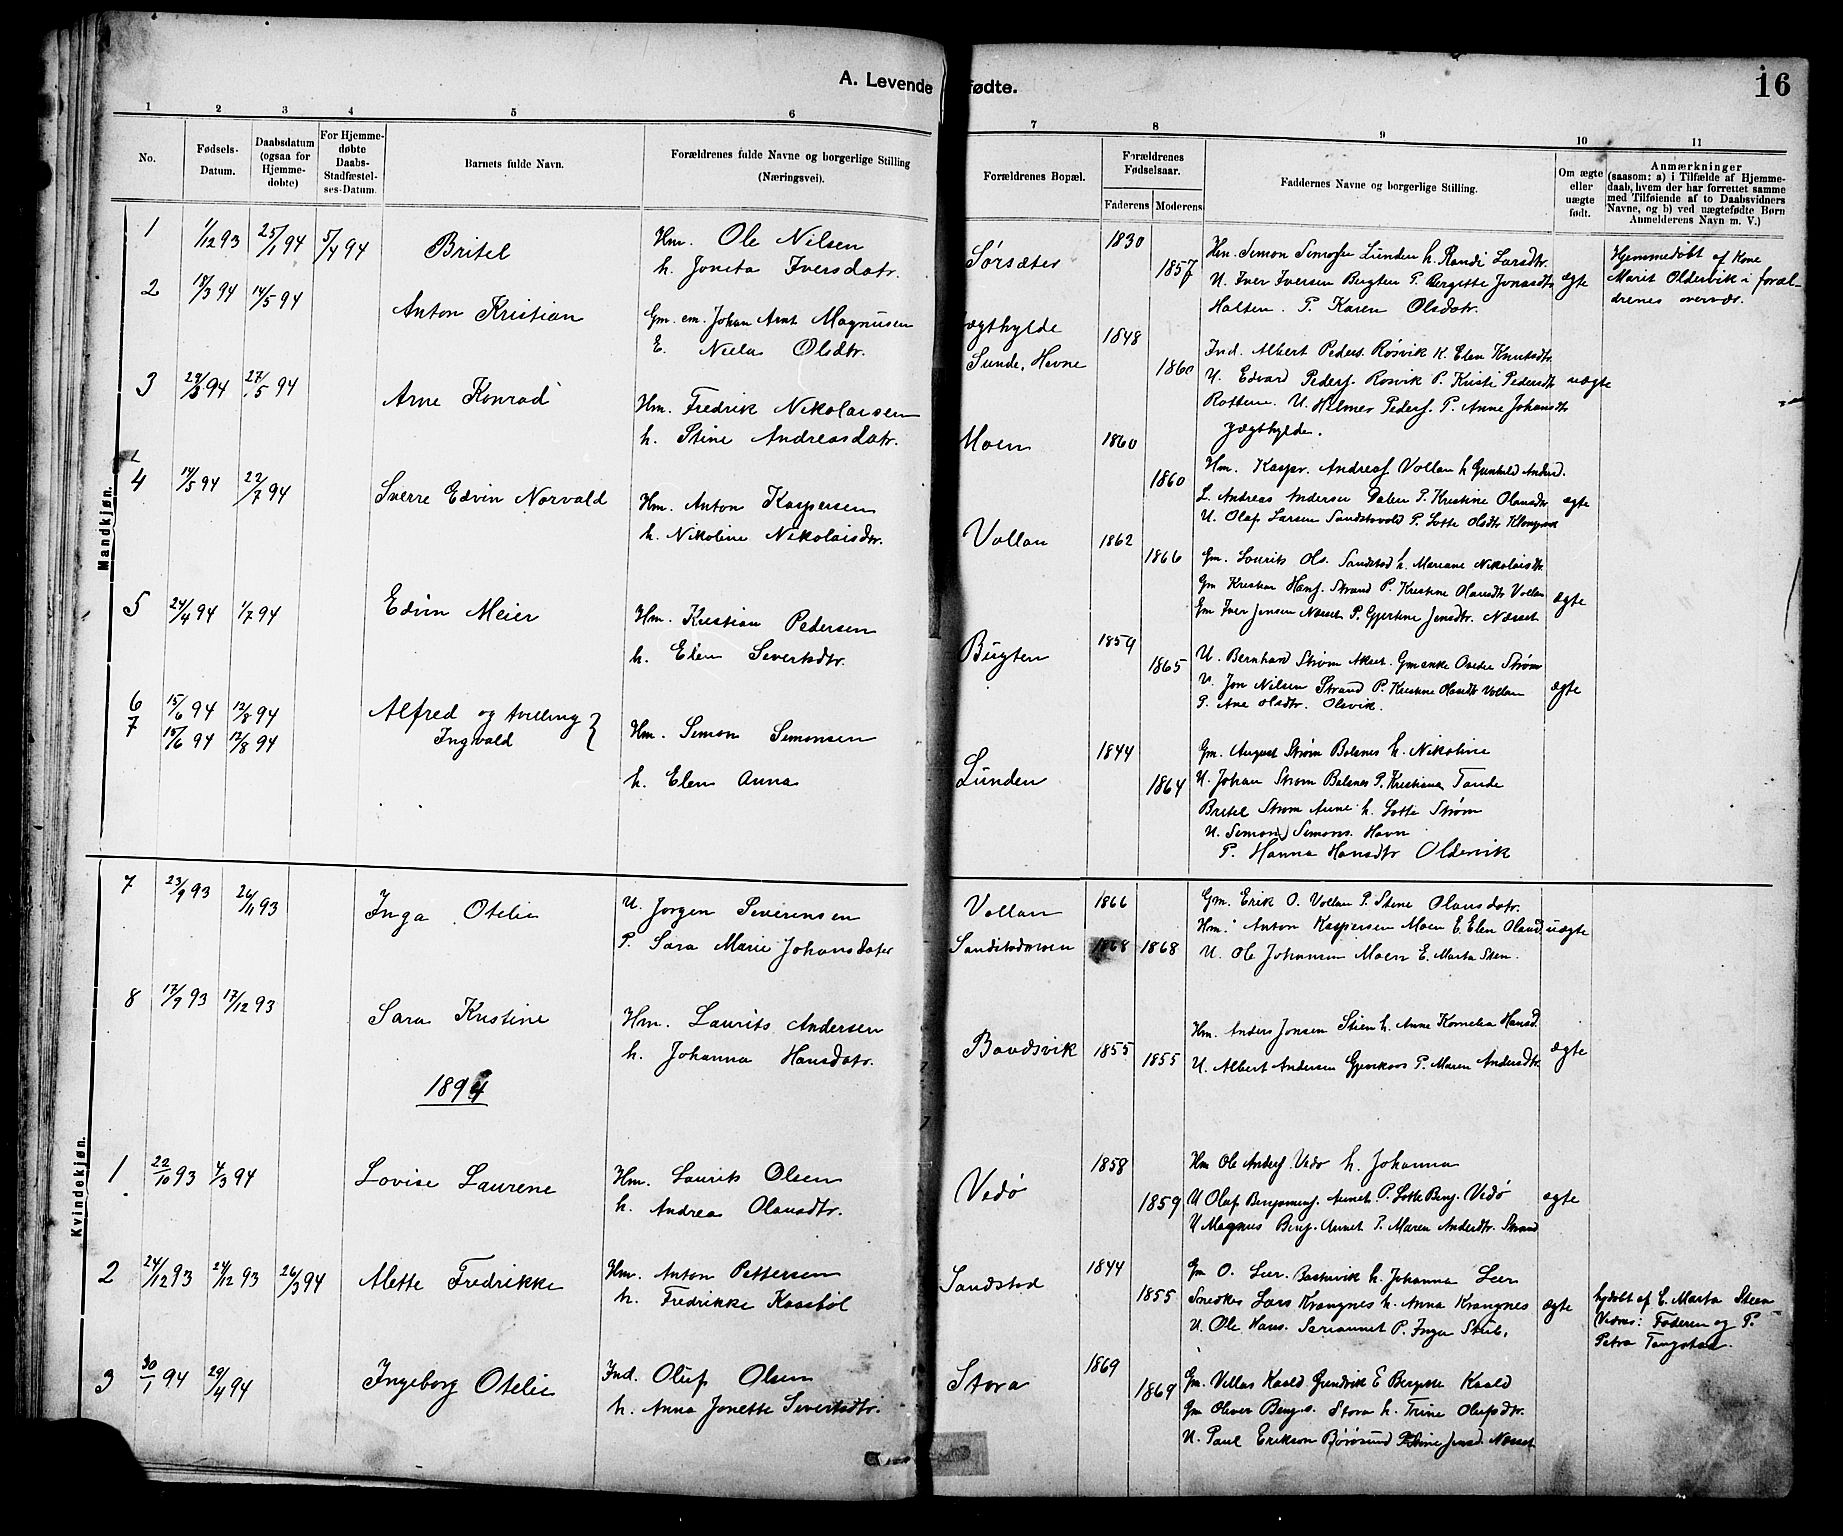 A. Levende fødte.
16
1 2 3 4 5 6 7 8 9 10 11
No.
Fødsels-Datum.
Daabsdatum (ogsaa for Hjemme-døbte)
For Hjemme-døbte Daabs-Stadfæstel-ses-Datum.
Barnets fulde Navn.
Forældrenes fulde Navne og borgerlige Stilling (Næringsvei).
Forældrenes Bopæl.
Forældrenes Fødselsaar.
Faderens Moderens
Faddernes Navne og borgerlige Stilling.
Om ægte eller uægte født.
Anmærkninger
(saasom: a) i Tilfælde af Hjemme-
daab, hvem der har forrettet samme
med Tilføiende af to Daabsvidners
Navne, og b) ved uægtefødte Børn
Anmelderens Navn m. V.)
Mandkjøn.
1 1/12 93 25/1 94 5/4 94 Britel Hm. Ole Nilsen
h. Joneta Iversdatr.
Sørsæter 1830 1857
Hm. Simon Lunden h. Randi Larsdtr.
U. Iver Iversen Bugten P. Bergitte Jonasdtr
Halten. P. Karen Olsdatr.
ægte
Hjemmedøbt af Kone
Marit Oldervik i foræl-
drenes overvær.
2 18/3 94 14/5 94 Anton Kristian Gm. em. Johan Arnt Magnusen
E. Niela Olsdtr.
Jægthylde
Sunde, Hevne 1848 1860
Ind. Albert Peders. Rösvik K. Elen Knutsdtr.
U. Edvard Peders. Rosvik P. Kristi Pedersdtr
Rotten. U. Hilmer Peders. P. Anne Johansdtr
Jægthylde.
uægte
3 29/3 94 27/5 94 Arne Konrad Hm. Fredrik Nikolaisen
h. Stine Andreasdatr.
Moen 1860 1860
Hm. Kaspr. Andreas. Vollan h Gunhild Andersd.
L. Andreas Andersen Dalen P. Kristine Olausdtr
U. Olaf Larsen Sandstovold P. Lotte Olsdtr
ægte
4 14/5 94 22/7 94 Sverre Edvin Norvald Hm. Anton Kaspersen
h. Nikoline Nikolaisdtr.
Vollan 1862 1866
Gm. Laurits Ols. Sandstad h. Mariane Nikolaisdtr.
Gm Kristian Hans. Strand P. Kristine Olausdtr Vollan
Gm Iver Jensen Næsset P. Gjertine Jensdtr. Næsset
ægte
5 24/4 94 1/7 94 Edvin Meier Hm. Kristian Pedersen
h. Elen Sivertsdtr.
Bugten 1859 1865
U. Bernhard Strøm Akset. Gmenke Ovedie Strøm
U. Jon Nilsen Strand P. Kristine Olausdtr Vollan
P. Ane Olsdtr. Olsvik.
ægte
6 15/6 94 12/8 94 Alfred og tvilling
7 15/6 94 12/8 94 Ingvald
Hm. Simon Simonsen
h. Elen Anna
Lunden 1844 1864
Gm. August Strøm Balsnes h. Nikoline
U. Johan Strøm Balsnes P. Kristiana Tande
Britel Strøm Aune h. Lotte Strøm
U. Simon Simons. Havn
P. Hanna Hansdtr Oldervik
Kvindekjøn.
7 23/9 93 26/11 93 Inga Otelie U. Jørgen Severensen
P. Sara Marie Johansdater
Vollan
Sandstadmoen 1866 1868 1868
Gm. Erik O. Vollan P. Stine Olausdatr.
Hm. Anton Kaspersen Moen E. Elen Olausd.
U. Ole Johansen Moen E. Marta Steen.
uægte
8 17/9 93 17/12 93 Sara Kristine Hm. Laurits Andersen
h. Johanna Hansdatr.
Baadsvik 1855 1855
Hm. Anders Jonsen Stien h. Anne Kornelia Hansd.
U. Albert Andersen P. Maren Andersdtr.
ægte
1894
1 22/10 93 4/3 94 Lovise Laurene Hm. Laurits Olsen
h. Andrea Olausdtr.
Vedø 1858 1859
Hm Ole Anders. Vedø h. Johanna
U Olaf Benjamins. Aunet P. Lotte Benj. Vedø
U Magnus Benj. Aunet P. Maren Andersdtr. Strand
ægte
2 24/12 93 24/12 93 26/3 94 Alette Fredrikke Hm. Anton Pettersen
h. Fredrikke Kaasbøl
Sandstad 1844 1855
Gm O. Leer. Badsvik h. Johanna Leer
Snedker Lars Krangnes h. Anna Krangnes
U. Ole Hans. Sarianuet P. Inga Stub.
ægte
hjdøbt af E. Marta Steen
Vidner: Faderen og P.
Petra Tangstad.
3 30/1 94 29/4 94 Ingeborg Otelie Ind. Oluf Olsen
h. Anna Jonette Sivertsdtr.
Stora 1869 1869
Gm. Villas Kaald Grindvik E Bergitte Kaald
Gm Oliver Bengts. Stora h. Trine Olufsdtr.
U. Paul Erikson Børøsund P. Stine Jensd. Næsset